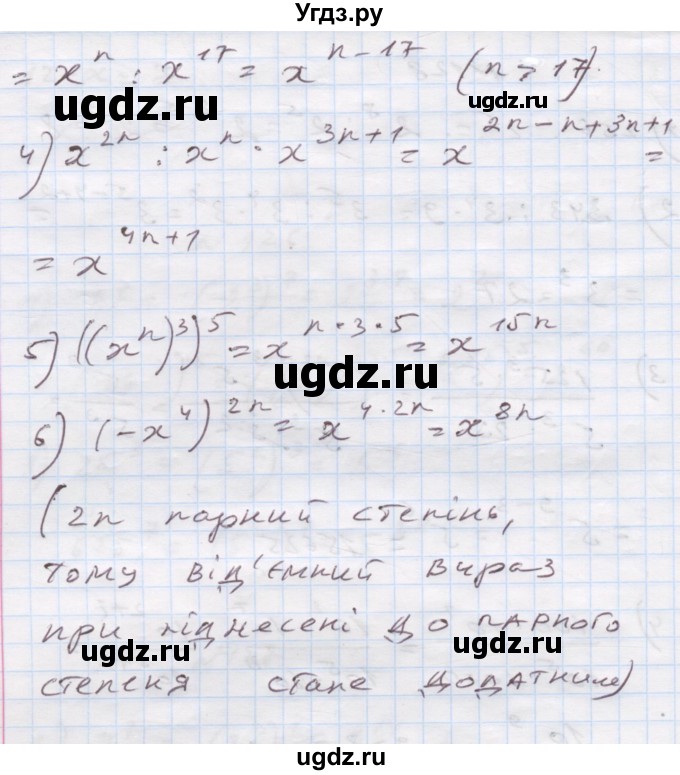 Угдз.ру
= x^n : x^17 = x^{n-17} (n > 17).
ugdz.ru ugdz.ru
4) x^{2n} : x^n · x^{3n+1} = x^{2n-n+3n+1} =
= x^{4n+1}
5) ((x^n)^3)^5 = x^{n·3·5} = x^{15n}
ugdz.ru
6) (-x^4)^{2n} = x^{4·2n} = x^{8n}
(2n парний степінь,
тому від'ємний вираз
при піднесені до парного
ugdz.ru ugdz.ru
степеня стане додатним)
ugdz.ru
ugdz.ru